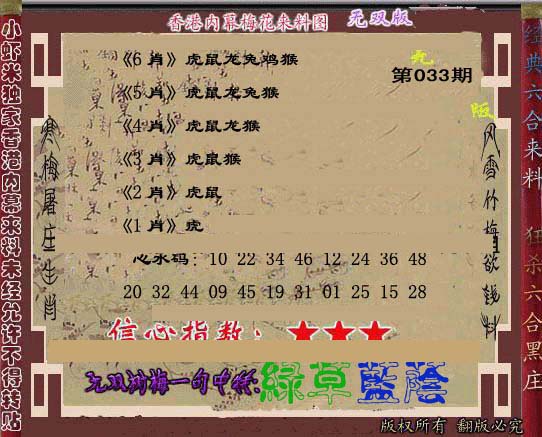 香港内幕梅花来料图 无双版
小虾米独家香港内幕来料未经允许不得转贴
经典六合来料 狂杀六合黑庄
第033期
《6 肖》虎鼠龙兔鸡猴
《5 肖》虎鼠龙兔猴
《4 肖》虎鼠龙猴
《3 肖》虎鼠猴
《2 肖》虎鼠
《1 肖》虎
寒梅屠庄生肖
风雪竹梅欲钱料
心水码：10 22 34 46 12 24 36 48
20 32 44 09 45 19 31 01 25 15 28
信心指数：★★★
綠草藍蔭
版权所有 翻版必究